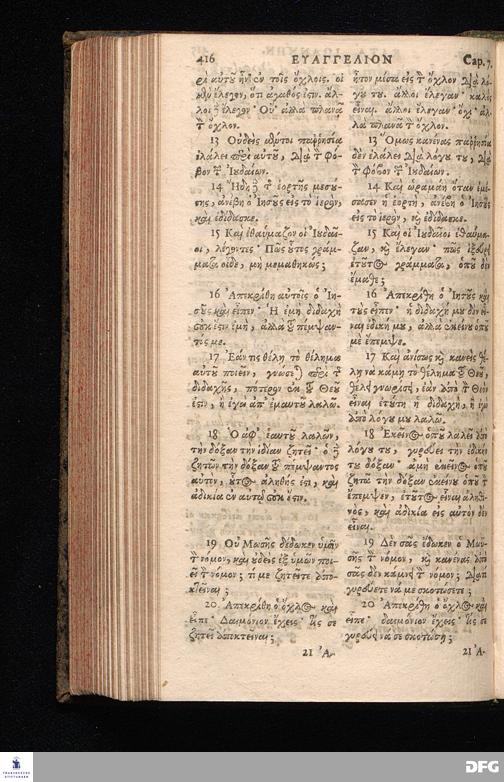 416
ΕΥΑΓΓΕΛΙΟΝ
Cap. 7.
ρὶ αὐτοῦ ἦν ἐν τοῖς ὄχλοις. οἱ
μὲν ἔλεγον, ὅτι ἀγαθός ἐστιν. ἄλ-
λοι δὲ ἔλεγον· Οὔ· ἀλλὰ πλανᾷ
τὸν ὄχλον.
13 Οὐδεὶς μέντοι παῤῥησίᾳ
ἐλάλει περὶ αὐτοῦ, διὰ τὸν φό-
βον τῶν Ἰουδαίων.
14 Ἤδη δὲ τῆς ἑορτῆς μεσού-
σης, ἀνέβη ὁ Ἰησοῦς εἰς τὸ ἱερὸν,
καὶ ἐδίδασκε.
15 Καὶ ἐθαύμαζον οἱ Ἰουδαῖ-
οι, λέγοντες· Πῶς οὗτος γράμ-
ματα οἶδε, μὴ μεμαθηκώς;
16 Ἀπεκρίθη αὐτοῖς ὁ Ἰη-
σοῦς καὶ εἶπεν· Ἡ ἐμὴ διδαχὴ
οὐκ ἔστιν ἐμὴ, ἀλλὰ τοῦ πέμψαν-
τός με.
17 Ἐάν τις θέλῃ τὸ θέλημα
αὐτοῦ ποιεῖν, γνώσεται περὶ τῆς
διδαχῆς, πότερον ἐκ τοῦ Θεοῦ
ἐστιν, ἢ ἐγὼ ἀπ' ἐμαυτοῦ λαλῶ.
18 Ὁ ἀφ' ἑαυτοῦ λαλῶν,
τὴν δόξαν τὴν ἰδίαν ζητεῖ· ὁ δὲ
ζητῶν τὴν δόξαν τοῦ πέμψαντος
αὐτὸν, οὗτος ἀληθής ἐστι, καὶ
ἀδικία ἐν αὐτῷ οὐκ ἔστιν.
19 Οὐ Μωσῆς δέδωκεν ὑμῖν
τὸν νόμον, καὶ οὐδεὶς ἐξ ὑμῶν ποι-
εῖ τὸν νόμον; τί με ζητεῖτε ἀπο-
κτεῖναι;
20 Ἀπεκρίθη ὁ ὄχλος καὶ
εἶπε· Δαιμόνιον ἔχεις· τίς σε
ζητεῖ ἀποκτεῖναι;
21 Ἀ-
ἦτον μέσα εἰς τὸν ὄχλον διὰ λό-
γου του. ἄλλοι ἔλεγαν· καλὸς
εἶναι. ἄλλοι ἔλεγαν· ὄχι· ἀλ-
λὰ πλανᾷ τὸν ὄχλον.
13 Ὅμως κανένας παῤῥησίᾳ
δὲν ἐλάλει διὰ λόγου του, διὰ
τὸν φόβον τῶν Ἰουδαίων.
14 Καὶ ὡραμὰν ὅταν ἐμέ-
σιασεν ἡ ἑορτὴ, ἀνέβη ὁ Ἰησοῦς
εἰς τὸ ἱερὸν, καὶ ἐδίδασκε.
15 Καὶ οἱ Ἰουδαῖοι ἐθαύμα-
ζαν, καὶ ἔλεγαν· πῶς ἠξεύρει
ἐτοῦτος γράμματα, ὁποῦ δὲν
ἔμαθε;
16 Ἀπεκρίθη ὁ Ἰησοῦς καὶ
τοὺς εἶπεν· ἡ διδαχή μου δὲν εἶ-
ναι ἐδική μου, ἀλλὰ ἐκείνου ὁποῦ
μὲ ἔπεμψε.
17 Καὶ ἀνίσως καὶ κανεὶς θέ-
λῃ νὰ κάμῃ τὸ θέλημα τοῦ Θεοῦ,
θέλει γνωρίσει, ἐὰν ἀπὸ τὸν Θεὸν
εἶναι ἐτούτη ἡ διδαχὴ, ἢ ἐγὼ
ἀπὸ λόγου μου λαλῶ.
18 Ἐκεῖνος ὁποῦ λαλεῖ ἀπὸ
λόγου του, γυρεύει τὴν ἐδικήν
του δόξαν· ἀμὴ ἐκεῖνος ὁποῦ
ζητᾷ τὴν δόξαν ἐκείνου ὁποῦ τὸν
ἔπεμψεν, ἐτοῦτος εἶναι ἀληθι-
νὸς, καὶ ἀδικία εἰς αὐτὸν δὲν
εἶναι.
19 Δὲν σᾶς ἔδωκεν ὁ Μωυ-
σῆς τὸν νόμον, καὶ κανένας ἀπὸ
σᾶς δὲν κάμνει τὸν νόμον; διατί
γυρεύετε νὰ με σκοτώσετε;
20 Ἀπεκρίθη ὁ ὄχλος καὶ
εἶπε· δαιμόνιον ἔχεις· τίς σε
γυρεύει νὰ σε σκοτώσῃ;
21 Ἀ-
FRANCKESCHE
STIFTUNGEN
DFG